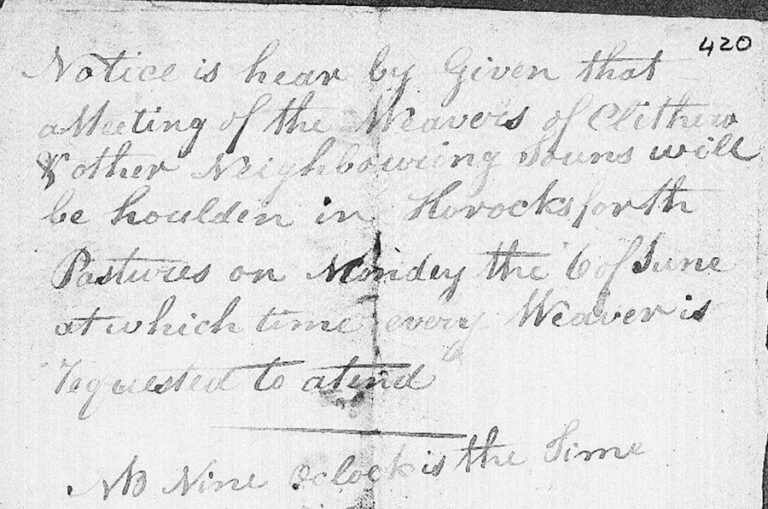 420
Notice is hear by Given that
a Meeting of the Weavers of Clitherw
& other Neighbouring Touns will
be houlden in Horocksforth
Pastures on Monday the 6 of June
at which time every Weaver is
requested to atend
NB Nine Oclock is the Time